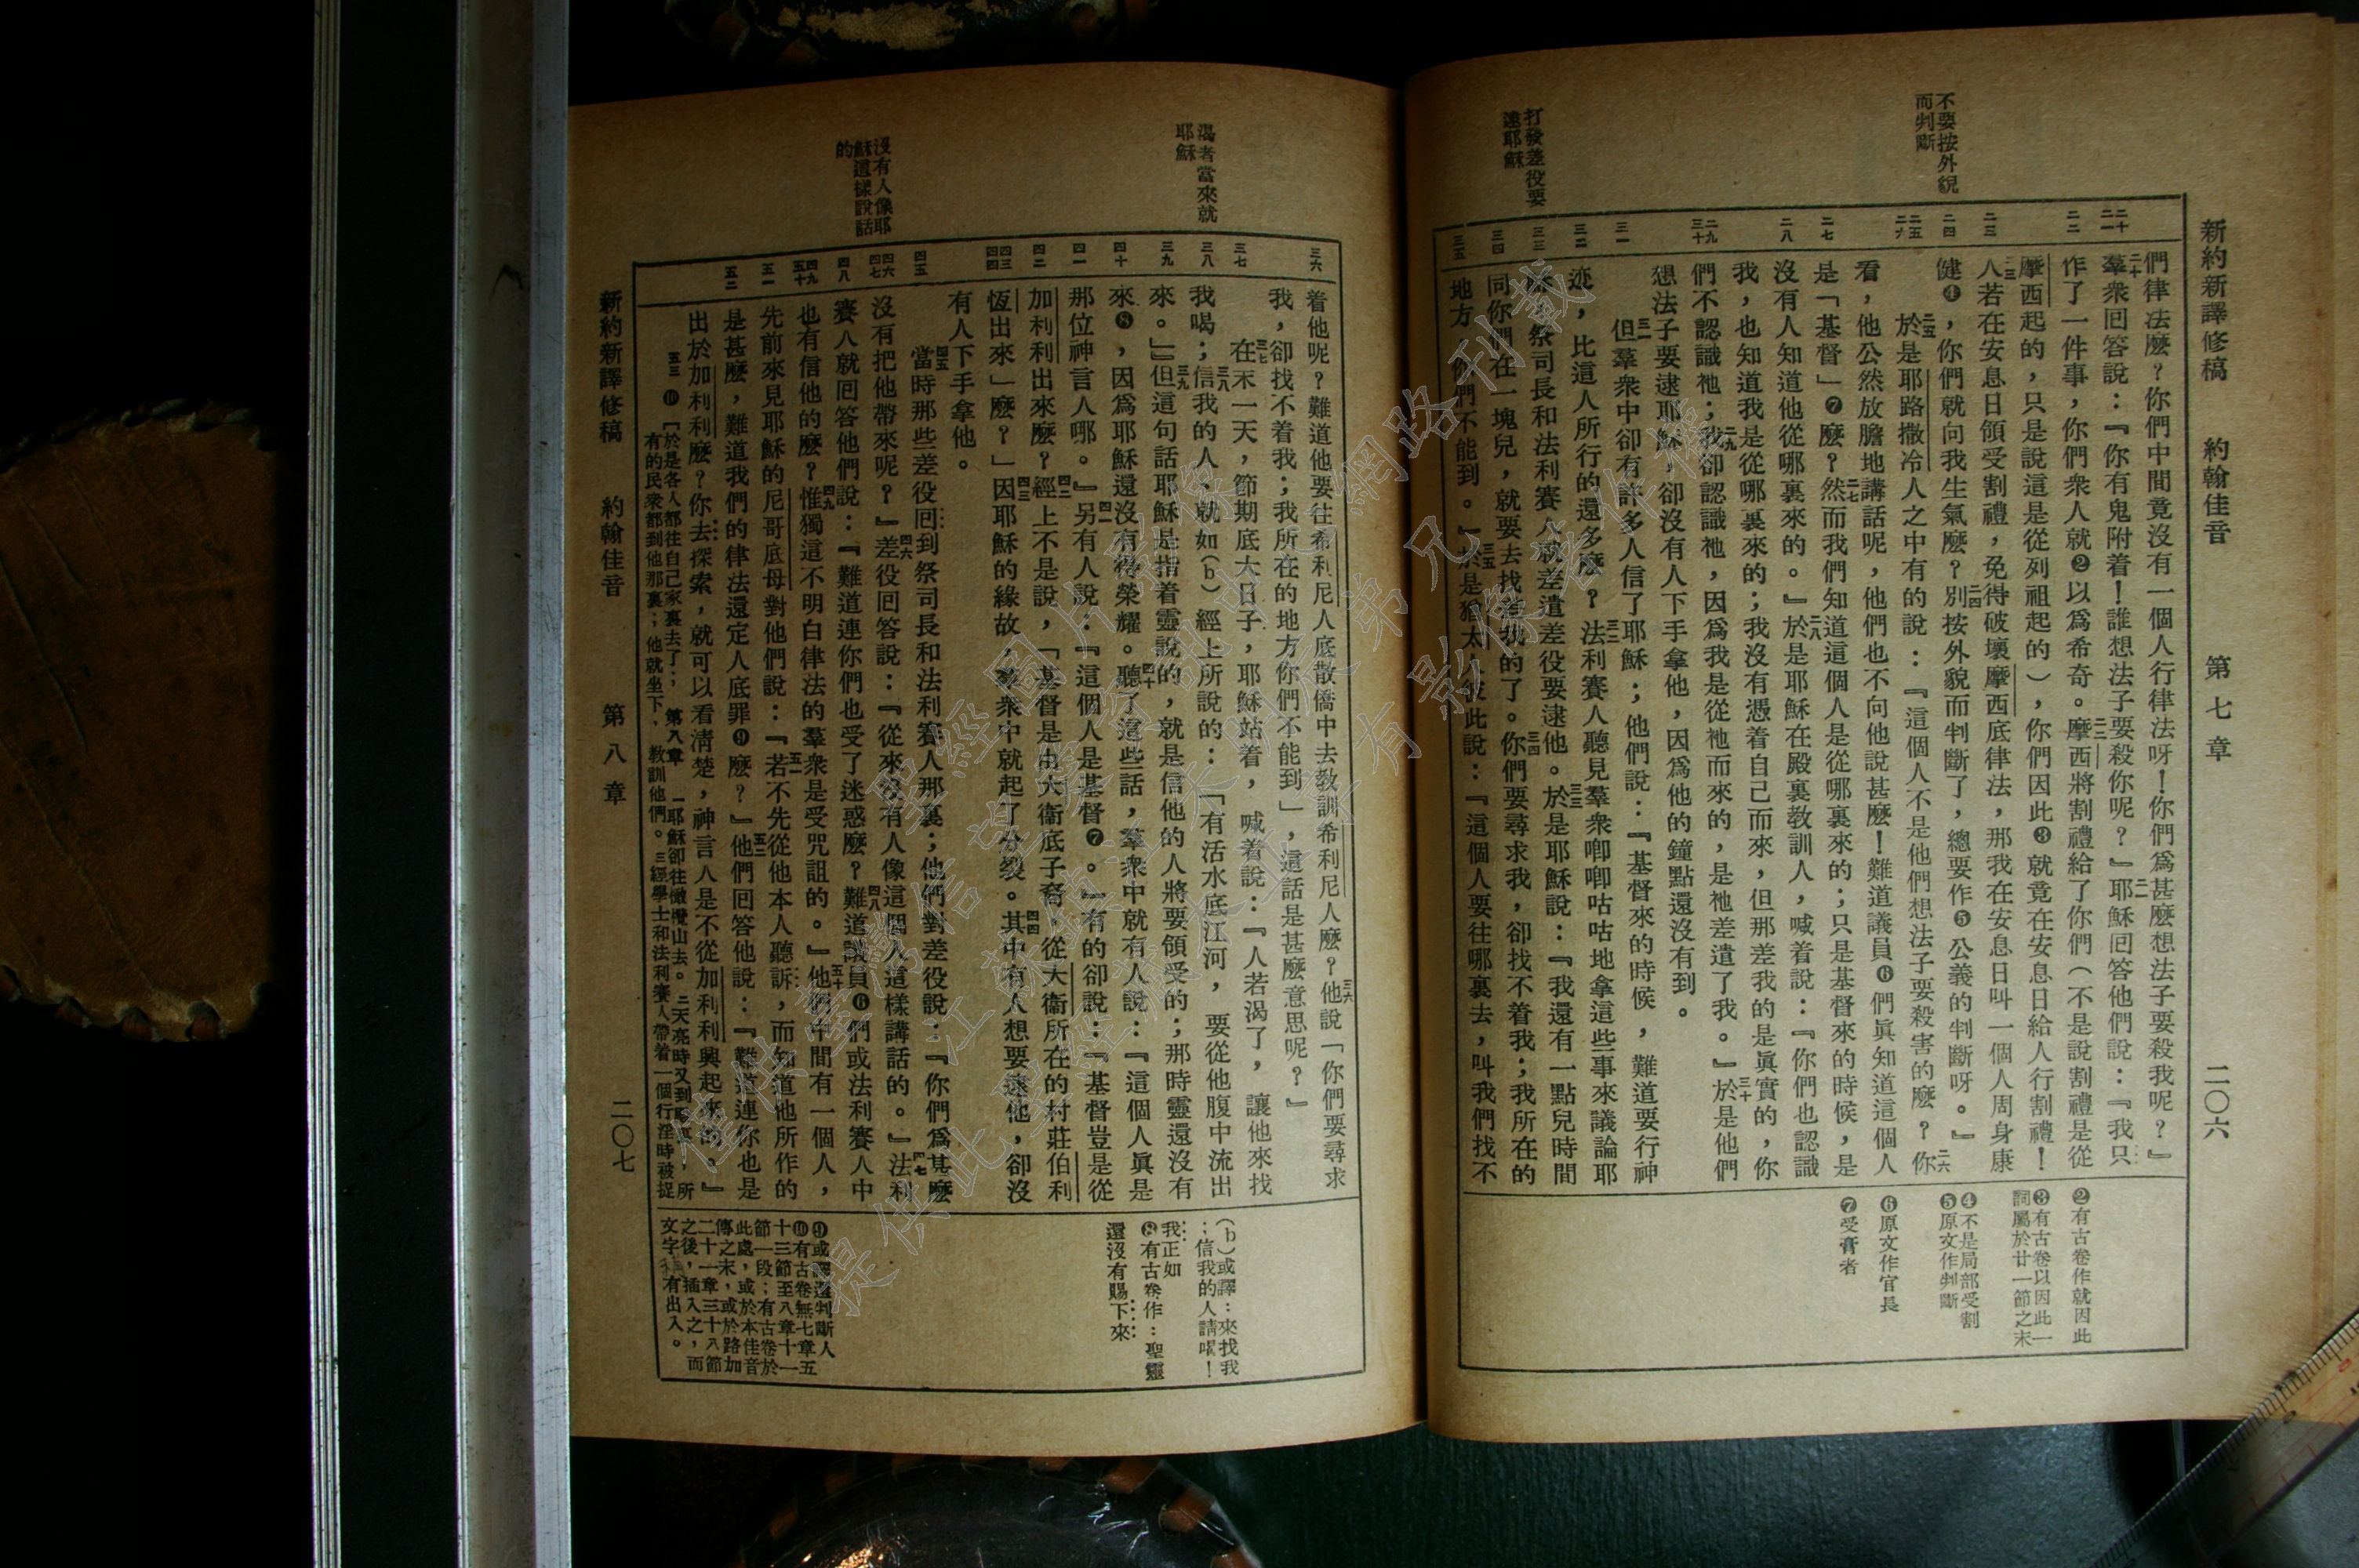 新約新譯修稿　約翰佳音　第七章　二〇六
不要按外貌
而判斷
打發差役要
逮耶穌
二十
二一
二二
二三
二四
二五
二六
二七
二八
二九
三十
三一
三二
三三
三四
三五
們律法麼？你們中間竟沒有一個人行律法呀！你們爲甚麼想法子要殺我呢？』
二十羣衆回答說：『你有鬼附着！誰想法子要殺你呢？』二一耶穌回答他們說：『我只
作了一件事，你們衆人就❷以爲希奇。二二摩西將割禮給了你們（不是說割禮是從
摩西起的，只是說這是從列祖起的），你們因此❸就竟在安息日給人行割禮！
二三人若在安息日領受割禮，免得破壞摩西底律法，那我在安息日叫一個人周身康
健❹，你們就向我生氣麼？二四別按外貌而判斷了，總要作❺公義的判斷呀。』
二五於是耶路撒冷人之中有的說：『這個人不是他們想法子要殺害的麼？二六你
看，他公然放膽地講話呢，他們也不向他說甚麼！難道議員❻們眞知道這個人
是「基督」❼麼？二七然而我們知道這個人是從哪裏來的；只是基督來的時候，是
沒有人知道他從哪裏來的。』二八於是耶穌在殿裏教訓人，喊着說：『你們也認識
我，也知道我是從哪裏來的；我沒有憑着自己而來，但那差我的是眞實的，你
們不認識祂；二九我卻認識祂，因爲我是從祂而來的，是祂差遣了我。』三十於是他們
想法子要逮耶穌，卻沒有人下手拿他，因爲他的鐘點還沒有到。
三一但羣衆中卻有許多人信了耶穌；他們說：『基督來的時候，難道要行神
迹，比這人所行的還多麼？三二法利賽人聽見羣衆唧唧咕咕地拿這些事來議論耶
穌，祭司長和法利賽人就差遣差役要逮他。三三於是耶穌說：『我還有一點兒時間
同你們在一塊兒，就要去找差我的了。三四你們要尋求我，卻找不着我；我所在的
地方你們不能到。』三五於是猶太人彼此說：『這個人要往哪裏去，叫我們找不
❷有古卷作就因此
❸有古卷以因此一
詞屬於廿一節之末
❹不是局部受割
❺原文作判斷
❻原文作官長
❼受膏者
渴者當來就
耶穌
沒有人像耶
穌這樣說話
的
三六
三七
三八
三九
四十
四一
四二
四三
四四
四五
四六
四七
四八
四九
五十
五一
五二
着他呢？難道他要往希利尼人底散僑中去教訓希利尼人麼？三六他說「你們要尋求
我，卻找不着我；我所在的地方你們不能到」，這話是甚麼意思呢？』
三七在末一天，節期底大日子，耶穌站着，喊着說：『人若渴了，讓他來找
我喝；三八信我的人、就如(b)經上所說的：「有活水底江河，要從他腹中流出
來。」』三九但這句話耶穌是指着靈說的，就是信他的人將要領受的；那時靈還沒有
來❽，因爲耶穌還沒有得榮耀。四十聽了這些話，羣衆中就有人說：『這個人眞是
那位神言人哪。』四一另有人說：『這個人是基督❼。』有的卻說：『基督豈是從
加利利出來麼？四二經上不是說，「基督是由大衞底子裔，從大衞所在的村莊伯利
恆出來」麼？」四三因耶穌的緣故，羣衆中就起了分裂。四四其中有人想要逮他，卻沒
有人下手拿他。
四五當時那些差役回到祭司長和法利賽人那裏；他們對差役說：『你們爲甚麼
沒有把他帶來呢？』四六差役回答說：『從來沒有人像這個人這樣講話的。』四七法利
賽人就回答他們說：『難道連你們也受了迷惑麼？四八難道議員❻們或法利賽人中
也有信他的麼？四九惟獨這不明白律法的羣衆是受咒詛的。』五十他們中間有一個人，
先前來見耶穌的尼哥底母對他們說：『五一若不先從他本人聽訴，而知道他所作的
是甚麼，難道我們的律法還定人底罪❾麼？』五二他們回答他說：『難道連你也是
出於加利利麼？你去探索，就可以看清楚，神言人是不從加利利興起來的。』
五三❿［於是各人都往自己家裏去了；　第八章　一耶穌卻往橄欖山去。二天亮時又到殿裏，所
有的民衆都到他那裏；他就坐下、教訓他們。三經學士和法利賽人帶着一個行淫時被捉
(b)或譯：來找我
；信我的人請喝！
我正如
❽有古卷作：聖靈
還沒有賜下來
❾或譯還判斷人
❿有古卷無七章五
十三節至八章十一
節一段；有古卷於
此處，或於本佳音
傳之末，或於路加
二十一章三十八節
之後，插入之，而
文字有出入。
新約新譯修稿　約翰佳音　第八章　二〇七
僅供聖經圖片影像
網路刊載